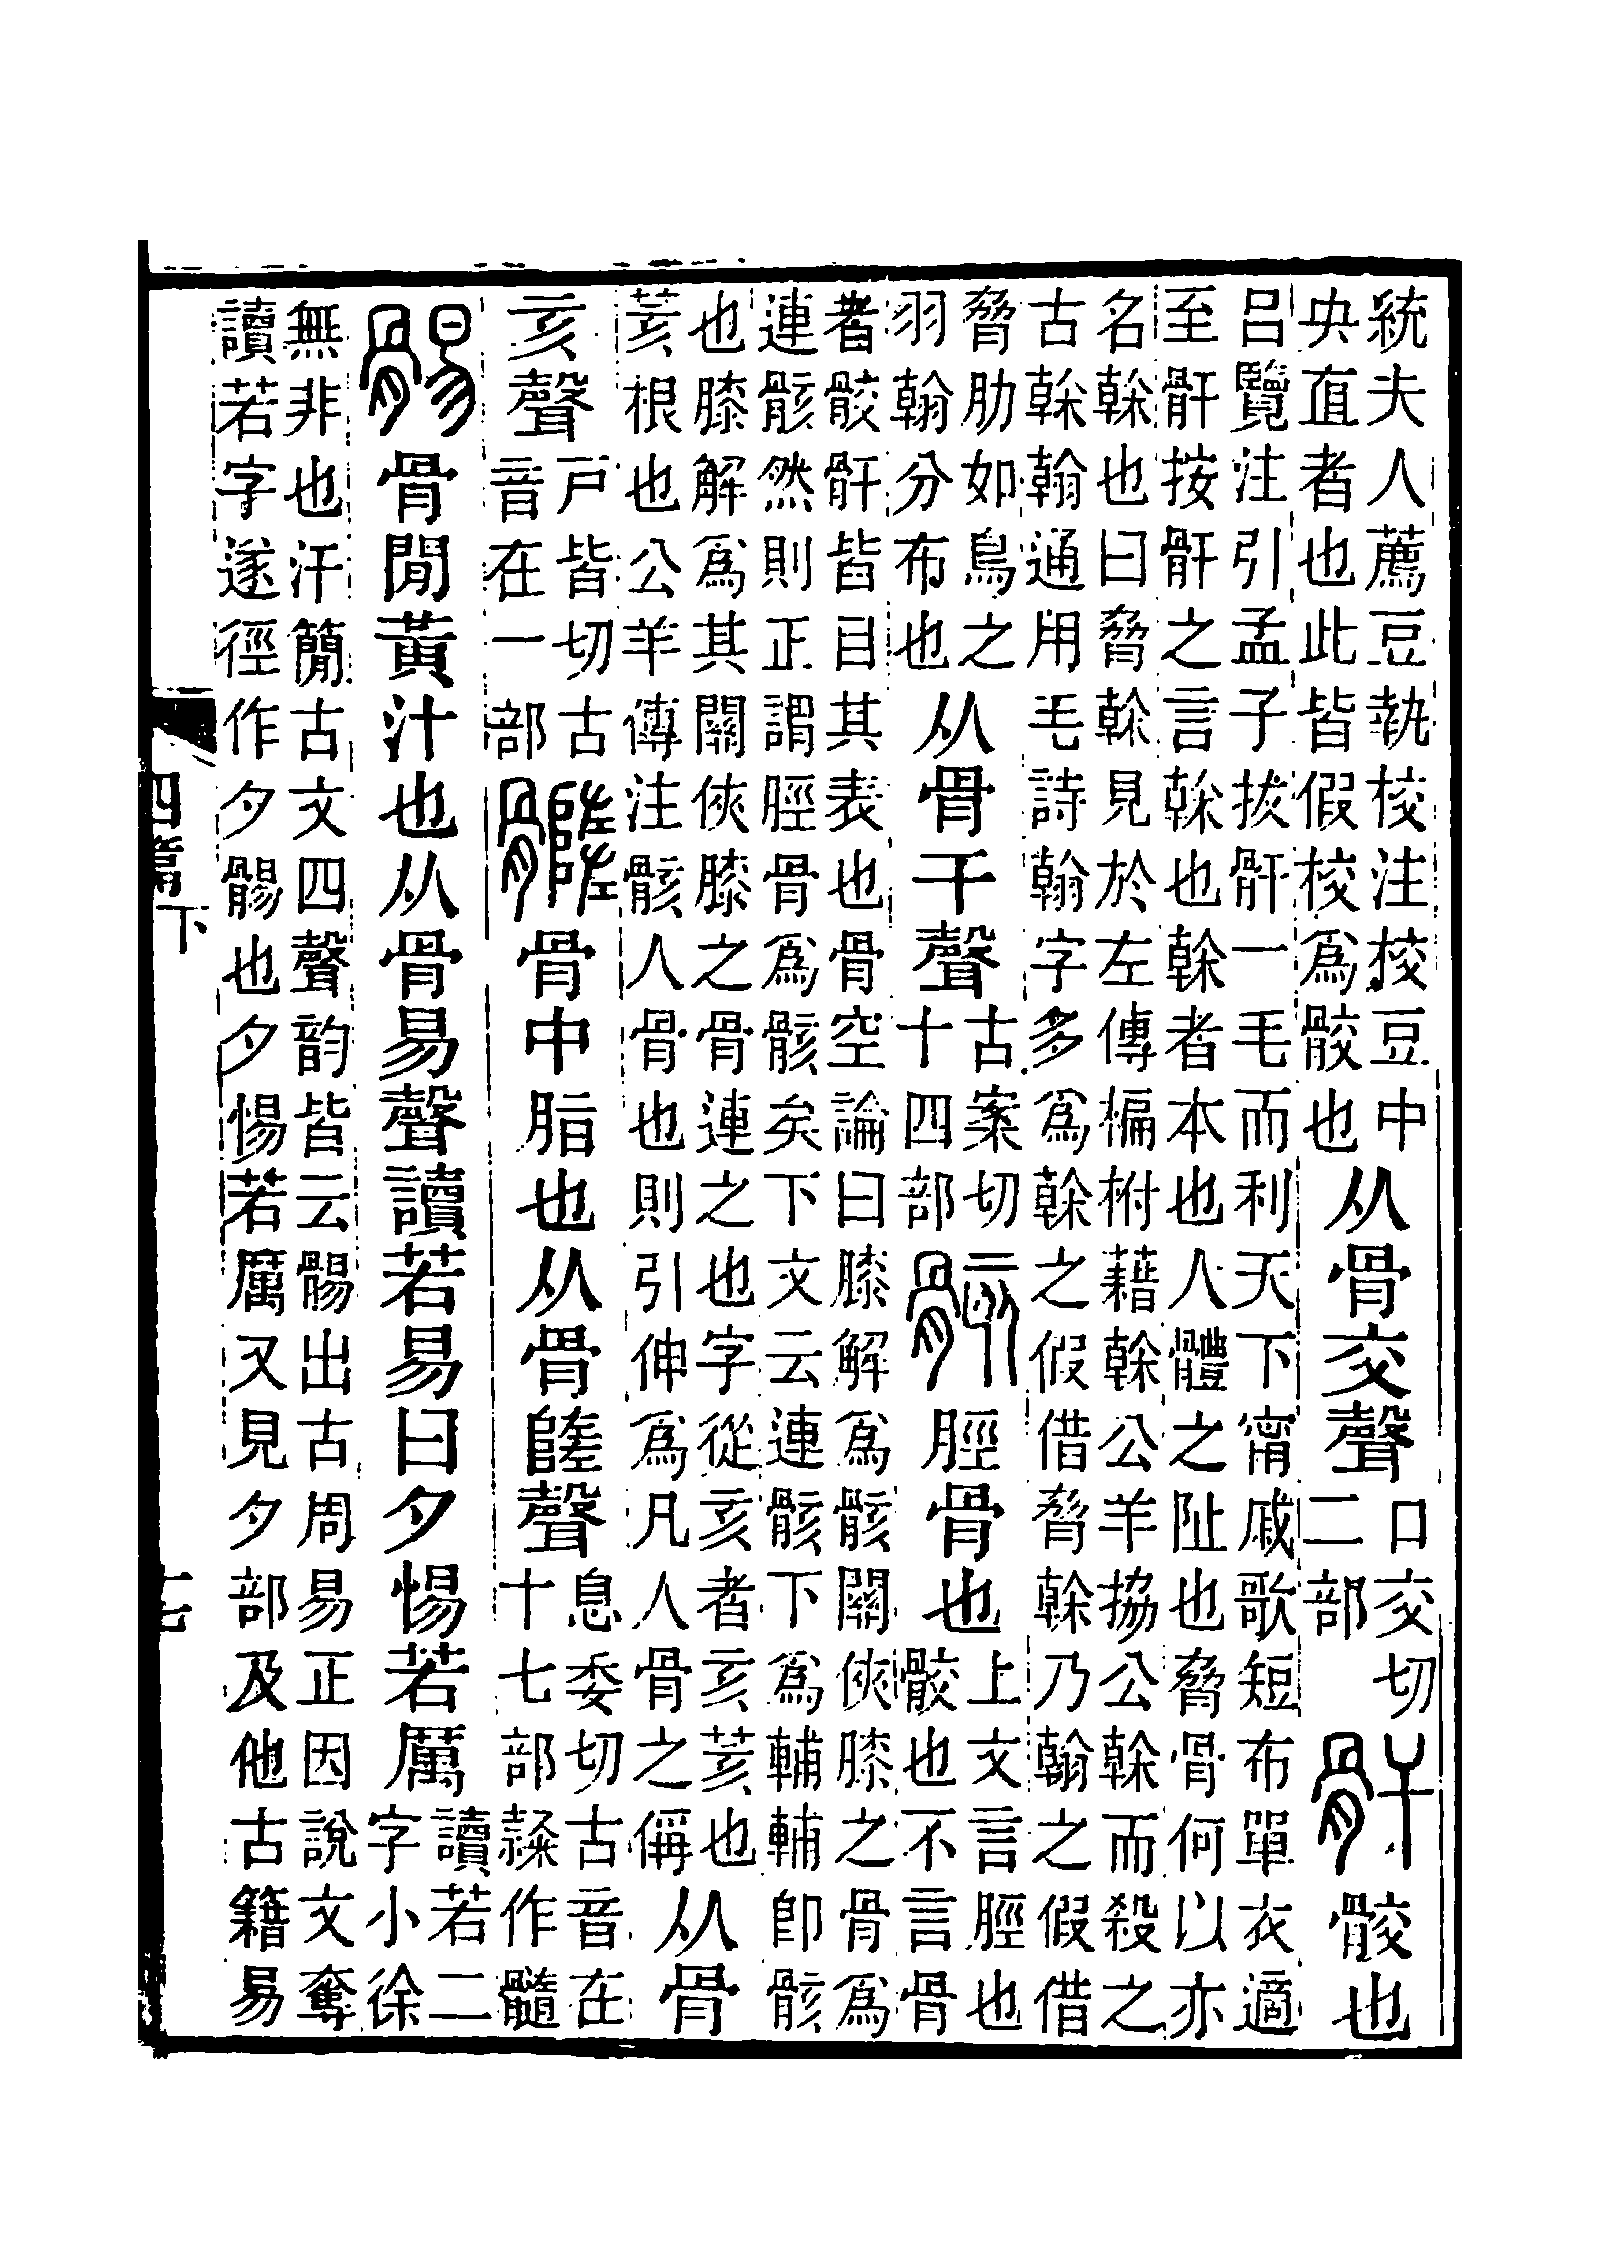 統夫人薦豆執校注校豆中
央直者也此皆假校爲骹也
从骨交聲
口交切
二部
骭
骹也
呂覽注引孟子拔骭一毛而利天下甯戚歌短布單衣適
至骭按骭之言榦也榦者本也人體之阯也脅骨何以亦
名榦也曰脅榦見於左傳楄柎藉榦公羊拹公榦而殺之
古榦翰通用毛詩翰字多爲榦之假借脅榦乃翰之假借
脅肋如鳥之
羽翰分布也
从骨干聲
古案切
十四部
骸
脛骨也
上文言脛也
骹也不言骨
者骹骭皆目其表也骨空論曰膝解爲骸關俠膝之骨爲
連骸然則正謂脛骨爲骸矣下文云連骸下爲輔輔卽骸
也膝解爲其關俠膝之骨連之也字從亥者亥荄也
荄根也公羊傳注骸人骨也則引伸爲凡人骨之偁
从骨
亥聲
戶皆切古
音在一部
𩪦
骨中脂也从骨隓聲
息委切古音在
十七部隸作髓
䯜
骨閒黃汁也从骨易聲讀若易曰夕惕若厲
讀若二
字小徐
無非也汗簡古文四聲韵皆云䯜出古周易正因說文奪
讀若字遂徑作夕䯜也夕惕若厲又見夕部及他古籍易
四篇下
十七